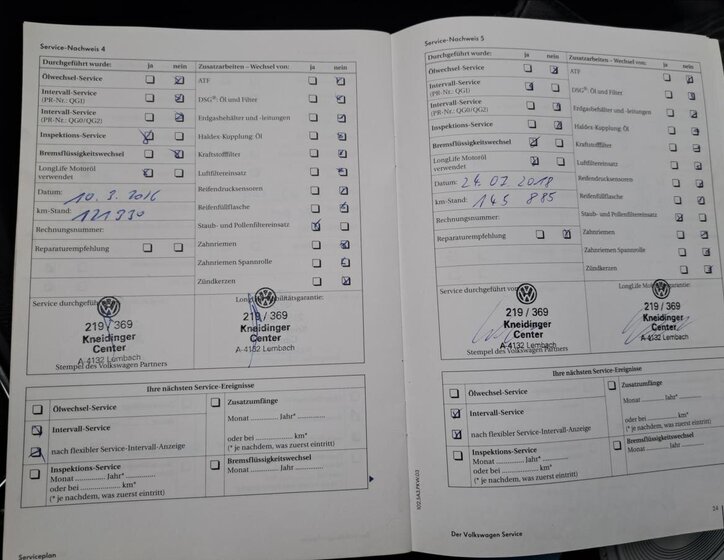 Service-Nachweis 4
Durchgeführt wurde: ja nein
Ölwechsel-Service
Intervall-Service
(PR-Nr.: QG1)
Intervall-Service
(PR-Nr.: QG0/QG2)
Inspektions-Service
Bremsflüssigkeitswechsel
LongLife Motoröl
verwendet
Datum: 10. 3. 2016
km-Stand: 121 330
Rechnungsnummer:
Reparaturempfehlung
Zusatzarbeiten – Wechsel von: ja nein
ATF
DSG®: Öl und Filter
Erdgasbehälter und -leitungen
Haldex-Kupplung: Öl
Kraftstofffilter
Luftfiltereinsatz
Reifendrucksensoren
Reifenfüllflasche
Staub- und Pollenfiltereinsatz
Zahnriemen
Zahnriemen Spannrolle
Zündkerzen
Service durchgeführt
219 / 369
Kneidinger
Center
A-4132 Lembach
Stempel des Volkswagen Partners
219 / 369
Kneidinger
Center
A-4132 Lembach
Ihre nächsten Service-Ereignisse
Ölwechsel-Service
Intervall-Service
nach flexibler Service-Intervall-Anzeige
Inspektions-Service
Monat ............ Jahr* ............
oder bei ............ km*
(* je nachdem, was zuerst eintritt)
Zusatzumfänge
Monat ............ Jahr* ............
oder bei ............ km*
(* je nachdem, was zuerst eintritt)
Bremsflüssigkeitswechsel
Monat ............ Jahr* ............
Serviceplan
Service-Nachweis 5
Durchgeführt wurde: ja nein
Ölwechsel-Service
Intervall-Service
(PR-Nr.: QG1)
Intervall-Service
(PR-Nr.: QG0/QG2)
Inspektions-Service
Bremsflüssigkeitswechsel
LongLife Motoröl
verwendet
Datum: 24. 07 2018
km-Stand: 145 885
Rechnungsnummer:
Reparaturempfehlung
Zusatzarbeiten – Wechsel von: ja nein
ATF
DSG®: Öl und Filter
Erdgasbehälter und -leitungen
Haldex-Kupplung: Öl
Kraftstofffilter
Luftfiltereinsatz
Reifendrucksensoren
Reifenfüllflasche
Staub- und Pollenfiltereinsatz
Zahnriemen
Zahnriemen Spannrolle
Zündkerzen
Service durchgeführt von
219 / 369
Kneidinger
Center
A-4132 Lembach
Stempel des Volkswagen Partners
219 / 369
Kneidinger
Center
A-4132 Lembach
Ihre nächsten Service-Ereignisse
Ölwechsel-Service
Intervall-Service
nach flexibler Service-Intervall-Anzeige
Inspektions-Service
Monat ............ Jahr* ............
oder bei ............ km*
(* je nachdem, was zuerst eintritt)
Zusatzumfänge
Monat ............ Jahr* ............
oder bei ............ km*
(* je nachdem, was zuerst eintritt)
Bremsflüssigkeitswechsel
Monat ............ Jahr* ............
24
Der Volkswagen Service